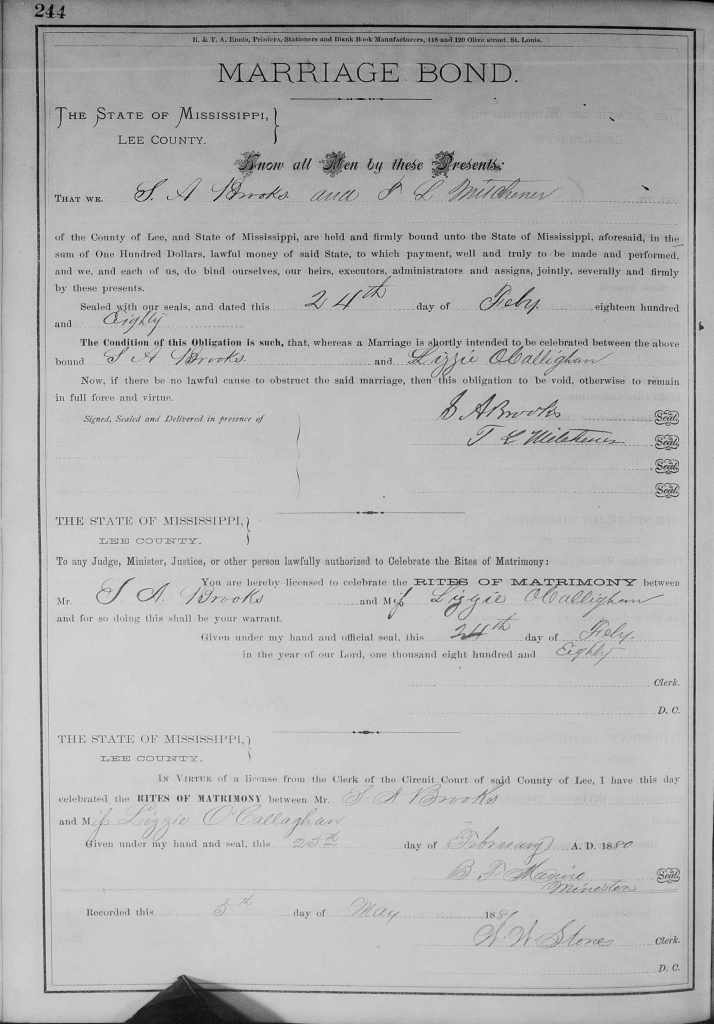 244
R. & T. A. Ennis, Printers, Stationers and Blank Book Manufacturers, 118 and 120 Olive street, St. Louis.
MARRIAGE BOND.
THE STATE OF MISSISSIPPI,
LEE COUNTY.
Know all Men by these Presents:
THAT WE, S. A Brooks and T L Mitchener
of the County of Lee, and State of Mississippi, are held and firmly bound unto the State of Mississippi, aforesaid, in the
sum of One Hundred Dollars, lawful money of said State, to which payment, well and truly to be made and performed,
and we, and each of us, do bind ourselves, our heirs, executors, administrators and assigns, jointly, severally and firmly
by these presents.
Sealed with our seals, and dated this 24th day of Feby eighteen hundred
and Eighty
The Condition of this Obligation is such, that, whereas a Marriage is shortly intended to be celebrated between the above
bound S A Brooks and Lizzie OCallighan
Now, if there be no lawful cause to obstruct the said marriage, then this obligation to be void, otherwise to remain
in full force and virtue.
Signed, Sealed and Delivered in presence of S A Brooks Seal.
T L Mitchener Seal.
Seal.
Seal.
THE STATE OF MISSISSIPPI,
LEE COUNTY.
To any Judge, Minister, Justice, or other person lawfully authorized to Celebrate the Rites of Matrimony:
You are hereby licensed to celebrate the RITES OF MATRIMONY between
Mr. S A. Brooks and Miss Lizzie OCallighan
and for so doing this shall be your warrant.
Given under my hand and official seal, this 24th day of Feby.
in the year of our Lord, one thousand eight hundred and Eighty
Clerk.
D. C.
THE STATE OF MISSISSIPPI,
LEE COUNTY.
IN VIRTUE of a license from the Clerk of the Circuit Court of said County of Lee, I have this day
celebrated the RITES OF MATRIMONY between Mr. S A Brooks
and Miss Lizzie OCallaghan
Given under my hand and seal, this 25th day of February A. D. 1880
B F Seal.
Minister
Recorded this 5th day of May 188
W W Stone Clerk.
D. C.